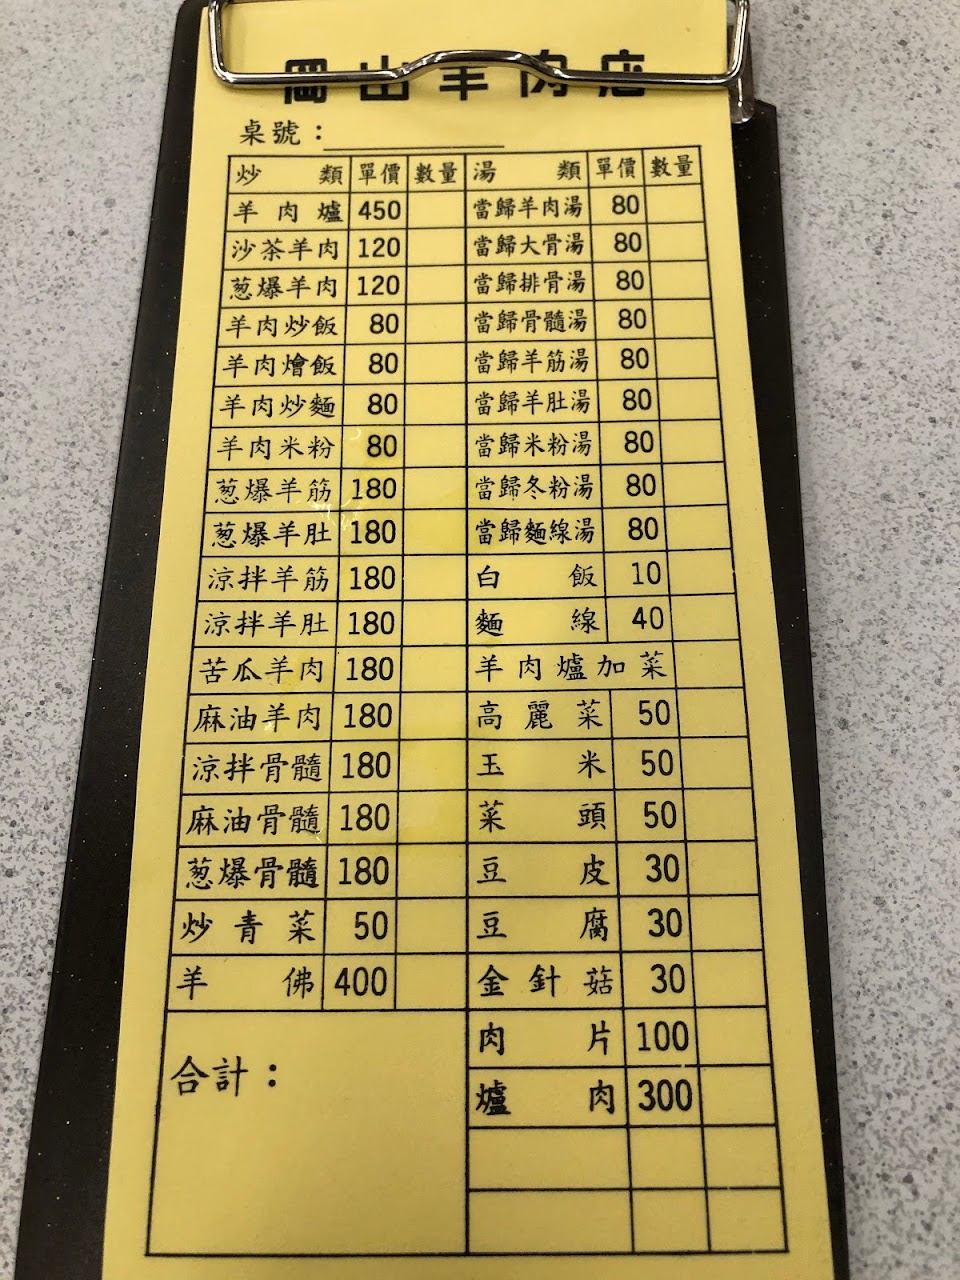 岡山羊肉店
桌號：
炒類 單價 數量 湯類 單價 數量
羊肉爐 450 當歸羊肉湯 80
沙茶羊肉 120 當歸大骨湯 80
葱爆羊肉 120 當歸排骨湯 80
羊肉炒飯 80 當歸骨髓湯 80
羊肉燴飯 80 當歸羊筋湯 80
羊肉炒麵 80 當歸羊肚湯 80
羊肉米粉 80 當歸米粉湯 80
葱爆羊筋 180 當歸冬粉湯 80
葱爆羊肚 180 當歸麵線湯 80
涼拌羊筋 180 白飯 10
涼拌羊肚 180 麵線 40
苦瓜羊肉 180 羊肉爐加菜
麻油羊肉 180 高麗菜 50
涼拌骨髓 180 玉米 50
麻油骨髓 180 菜頭 50
葱爆骨髓 180 豆皮 30
炒青菜 50 豆腐 30
羊佛 400 金針菇 30
肉片 100
爐肉 300
合計：